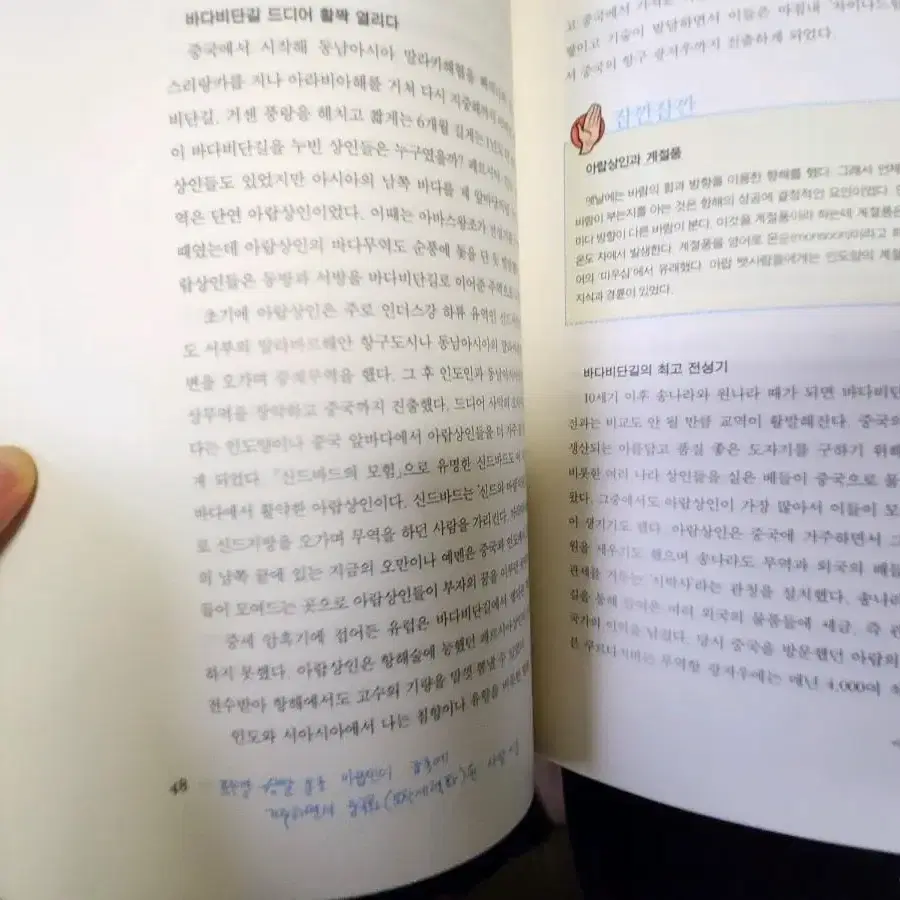 바다비단길 드디어 활짝 열리다
중국에서 시작해 동남아시아 말라카해협을
스리랑카를 지나 아라비아해를 거쳐 다시 지중해까지
비단길. 거센 풍랑을 헤치고 짧게는 6개월 길게는 1년도
이 바다비단길을 누빈 상인들은 누구였을까? 페르시아
상인들도 있었지만 아시아의 남쪽 바다를 제 앞마당처럼
역은 단연 아랍상인이었다. 이때는 아바스왕조가 전성기를
때였는데 아랍상인의 바다무역도 순풍에 돛을 단 듯
랍상인들은 동방과 서방을 바다비단길로 이어준 주역으로
초기에 아랍상인은 주로 인더스강 하류 유역인 신드
도 서부의 말라바르해안 항구도시나 동남아시아의 말라카
변을 오가며 중계무역을 했다. 그 후 인도인과 동남아시아
상무역을 장악하고 중국까지 진출했다. 드디어 사막의
다는 인도양이나 중국 앞바다에서 아랍상인들을 더 자주
게 되었다. 『신드바드의 모험』으로 유명한 신드바드도
바다에서 활약한 아랍상인이다. 신드바드는 '신드의 바람'이
로 신드지방을 오가며 무역을 하던 사람을 가리킨다.
의 남쪽 끝에 있는 지금의 오만이나 예멘은 중국과 인도
들이 모여드는 곳으로 아랍상인들이 부자의 꿈을 이루던
중세 암흑기에 접어든 유럽은 바다비단길에서
하지 못했다. 아랍상인은 항해술에 능했던 페르시아상인
전수받아 항해에서도 고수의 기량을 맘껏 뽐낼 수 있었다.
인도와 서아시아에서 나는 침향이나 유향을 비롯한
48
고 중국에서 가져온
렇이고 기술이 발달하면서 이들은 마침내 '차이나드
서 중국의 항구 광저우까지 진출하게 되었다.
잠깐잠깐
아랍상인과 계절풍
옛날에는 바람의 힘과 방향을 이용한 항해를 했다. 그래서 언제
바람이 부는지를 아는 것은 항해의 성공에 결정적인 요인이었다.
마다 방향이 다른 바람이 분다. 이것을 계절풍이라 하는데 계절풍은
온도 차에서 발생한다. 계절풍을 영어로 몬순(monsoon)이라고
어의 '마우심'에서 유래했다. 아랍 뱃사람들에게는 인도양의 계절
지식과 경륜이 있었다.
바다비단길의 최고 전성기
10세기 이후 송나라와 원나라 때가 되면 바다비단
전과는 비교도 안 될 만큼 교역이 활발해진다. 중국의
생산되는 아름답고 품질 좋은 도자기를 구하기 위해
비롯한 여러 나라 상인들을 실은 배들이 중국으로 몰
왔다. 그중에서도 아랍상인이 가장 많아서 이들이 모
이 생기기도 했다. 아랍상인은 중국에 거주하면서 그
원을 세우기도 했으며 송나라도 무역과 외국의 배들
관세를 거두는 '시박사'라는 관청을 설치했다. 송나라
길을 통해 들어온 여러 외국의 물품들에 세금, 즉 관
국가의 이익을 남겼다. 당시 중국을 방문했던 아랍의
무역항 광저우에는 매년 4,000여 척